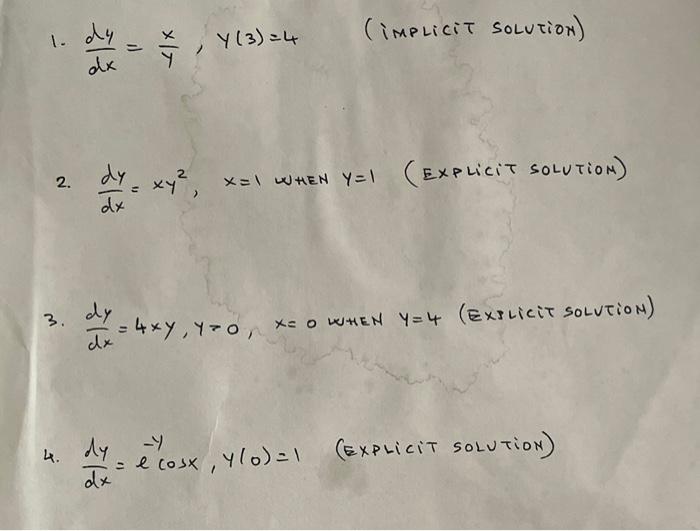 1. dy/dx = x/y, Y(3)=4 (IMPLICIT SOLUTION)
2. dy/dx = xy², x=1 WHEN Y=1 (EXPLICIT SOLUTION)
3. dy/dx = 4xy, Y>0, x=0 WHEN Y=4 (EXPLICIT SOLUTION)
4. dy/dx = e^-y cosx, Y(0)=1 (EXPLICIT SOLUTION)